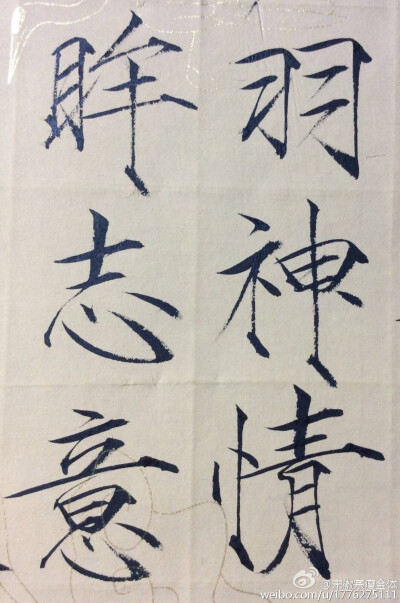 羽神情
眸志意
weibo.com/u/1776275111